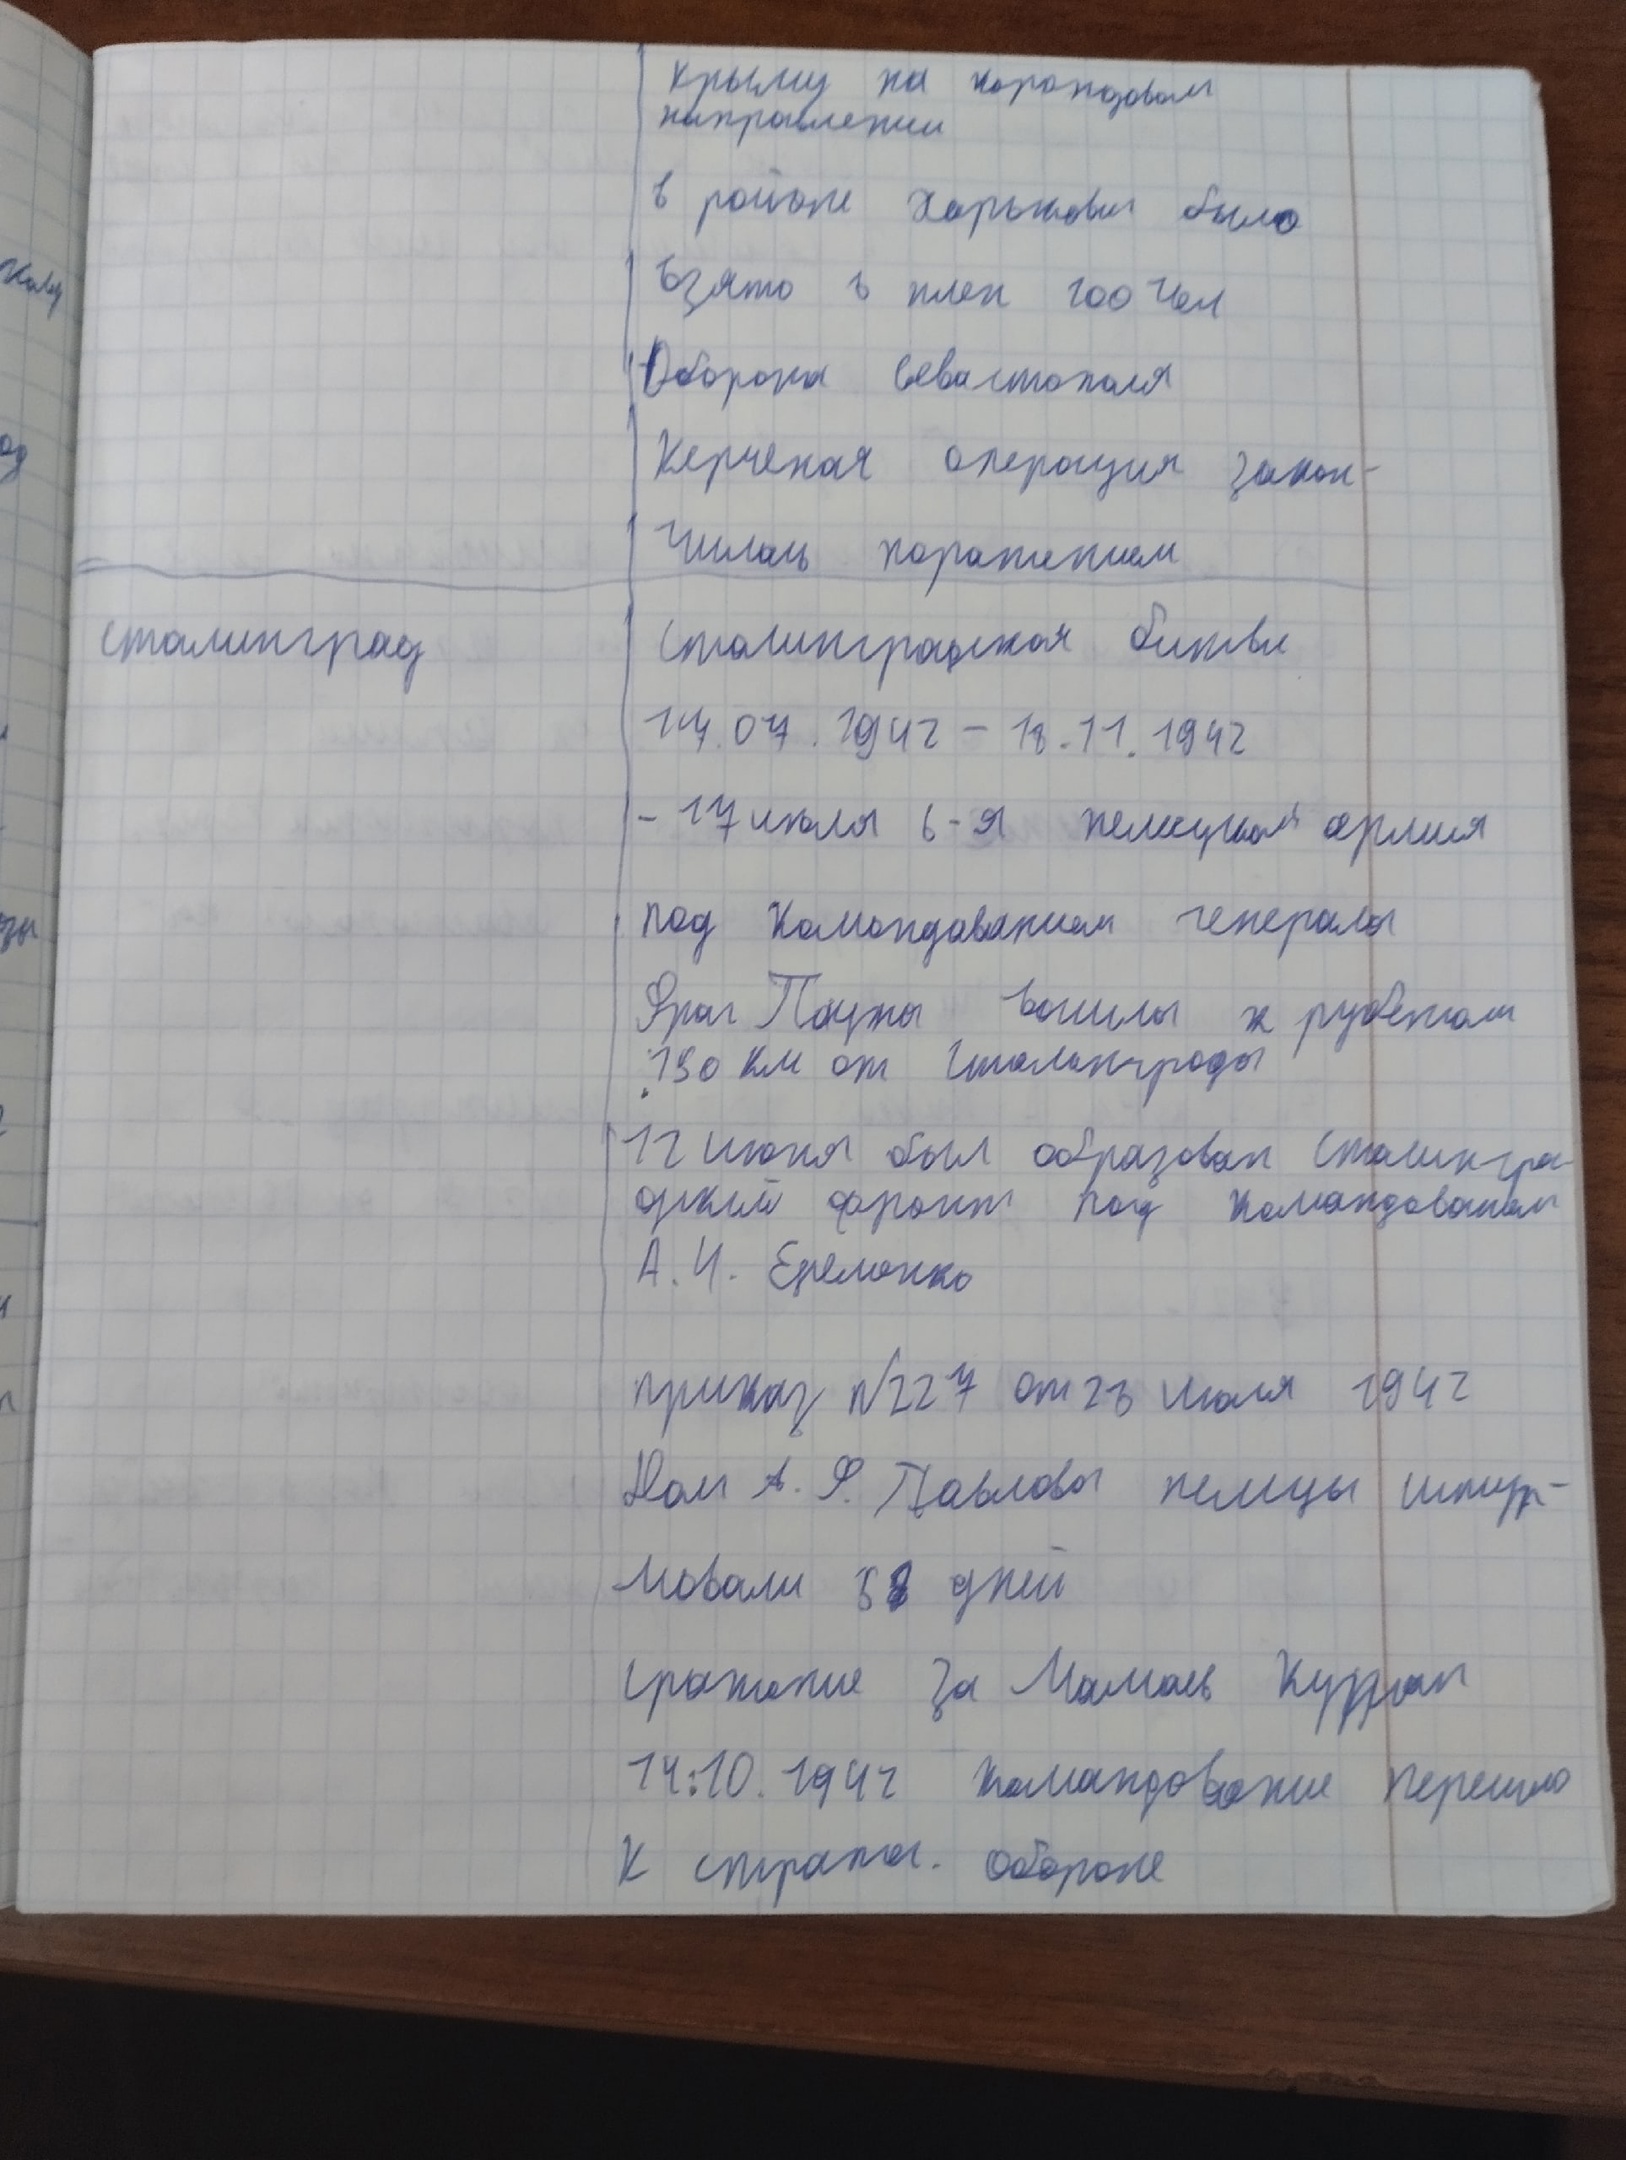 Крыму на
направлении
в районе Харькова было
взято в плен 200 чел
Оборона Севастополя
Керченая операция закон-
чилась поражением
Сталинград
Сталинградская битва
17.07.1942 - 18.11.1942
- 17 июля 6-я немецкой армия
под командованием генерала
Фраг Паума вошла к рубежам
130 км от Сталинграда
12 июня был образован Сталингра-
дский фронт под командованием
А.И. Еременко
приказ №227 от 28 июля 1942
Дом А.Ф. Павлова немцы штур-
мовали 58 дней
сражение за Мамаев Курган
14.10.1942 командование перешло
к страта. обороне